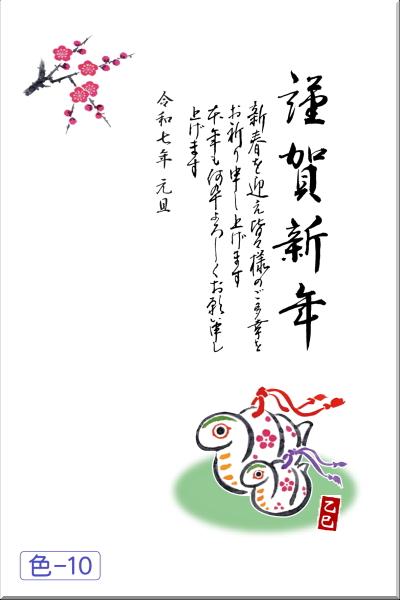 謹賀新年
新春を迎え皆々様のご多幸を
お祈り申し上げます
本年も何卒よろしくお願い申し
上げます
令和七年 元旦
乙巳
色-10